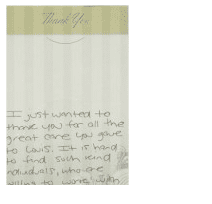 Thank You
I just wanted to
thank you for all the
great care you gave
to Louis. It is hard
to find such kind
individuals, who are
willing to work with